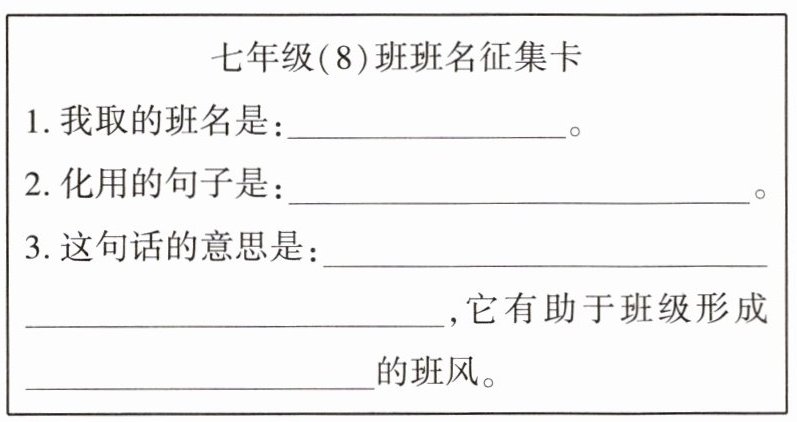 七年级(8)班班名征集卡
1. 我取的班名是:____________。
2. 化用的句子是:____________________。
3. 这句话的意思是:____________________
____________________,它有助于班级形成
________________的班风。